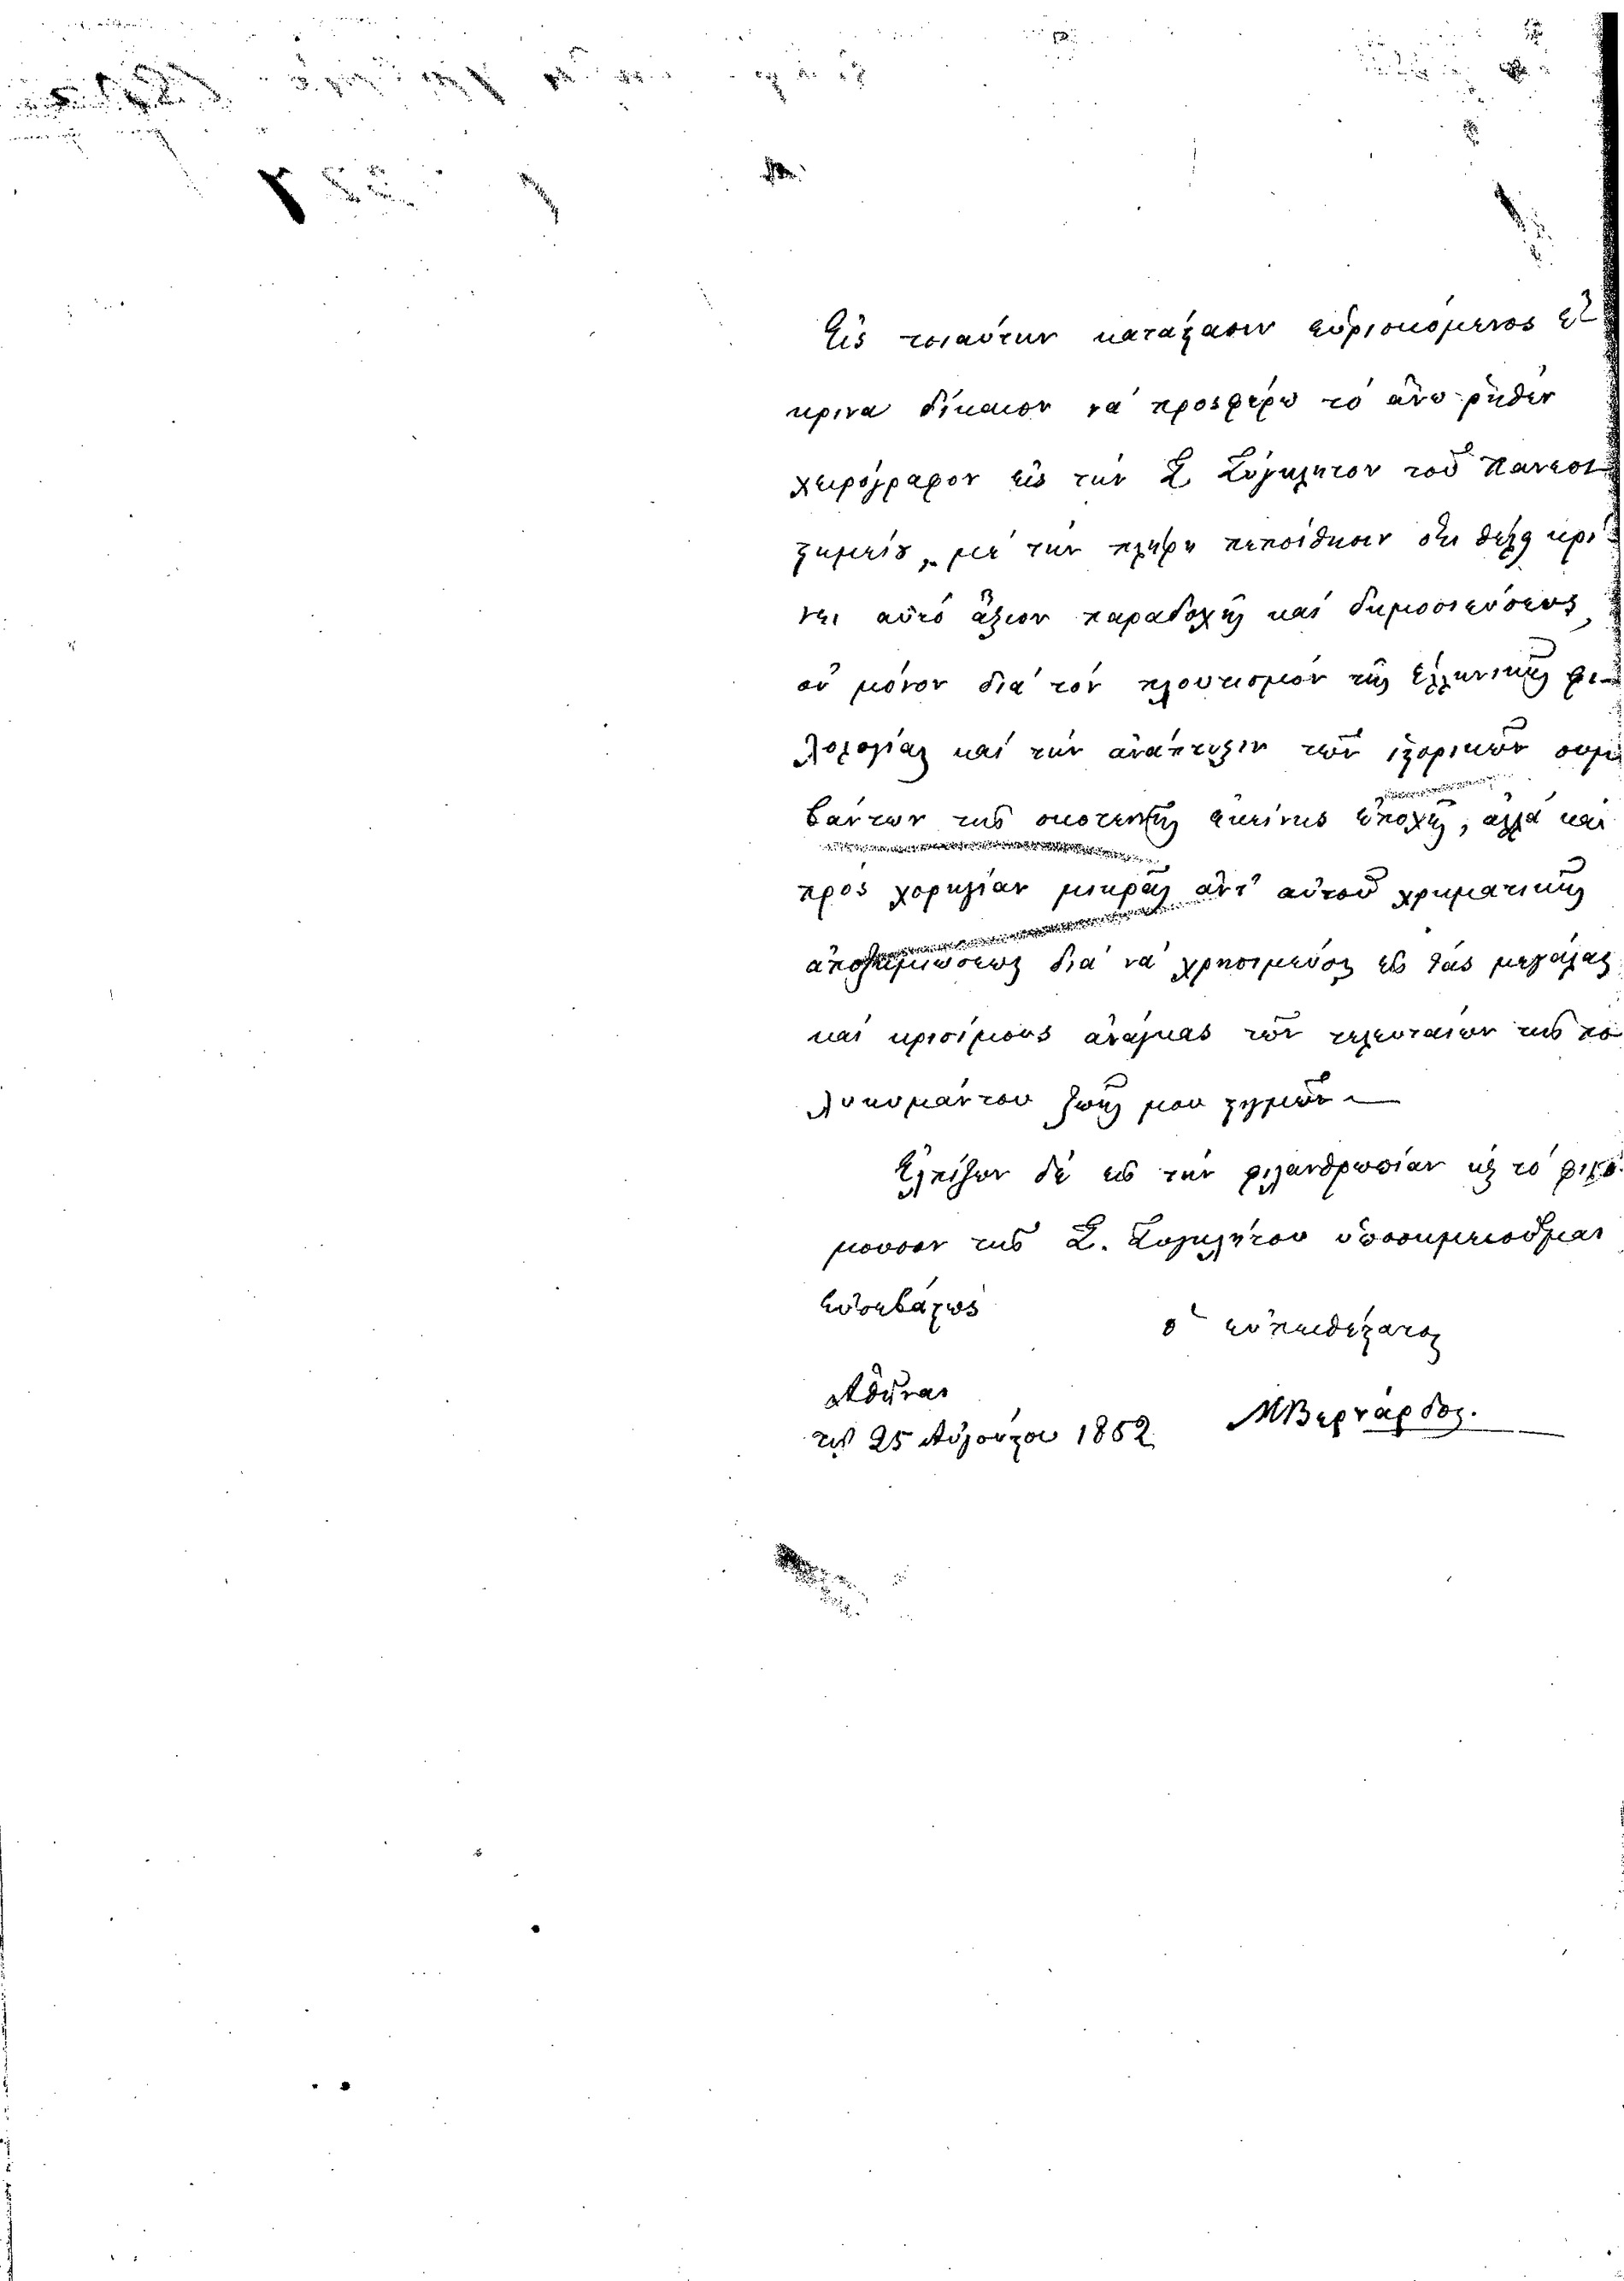 Εἰς τοιαύτην κατάστασιν εὑρισκόμενος ἔ
κρινα δίκαιον νὰ προσφέρω τὸ ἄνω ῥηθὲν
χειρόγραφον εἰς τὴν Σ. Σύγκλητον τοῦ Πανεπι
στημείου, μὲ τὴν πλήρη πεποίθησιν ὅτι θέλῃ κρί
νει αὐτὸ ἄξιον παραδοχῆς καὶ δημοσιεύσεως,
οὐ μόνον διὰ τὸν πλουτισμὸν τῆς Ἑλληνικῆς φι
λολογίας καὶ τὴν ἀνάπτυξιν τῶν ἱστορικῶν συμ
βάντων τῆς σκοτεινῆς ἐκείνης ἐποχῆς, ἀλλὰ καὶ
πρὸς χορηγίαν μικρᾶς ἀντ' αὐτοῦ χρηματικῆς
ἀποζημιώσεως διὰ νὰ χρησιμεύσῃ εἰς τὰς μεγάλας
καὶ κρισίμους ἀνάγκας τῶν τελευταίων τῆς πο
λυκυμάντου ζωῆς μου στιγμῶν.
Ἐλπίζων δὲ εἰς τὴν φιλανθρωπίαν κ̀ τὸ φιλό
μουσον τῆς Σ. Συγκλήτου ὑποσημειοῦμαι
εὐσεβάστως
ὁ εὐπειθέστατος
Ἀθῆναι
τῇ 25 Αὐγούστου 1852
ΜΒερνάρδος.